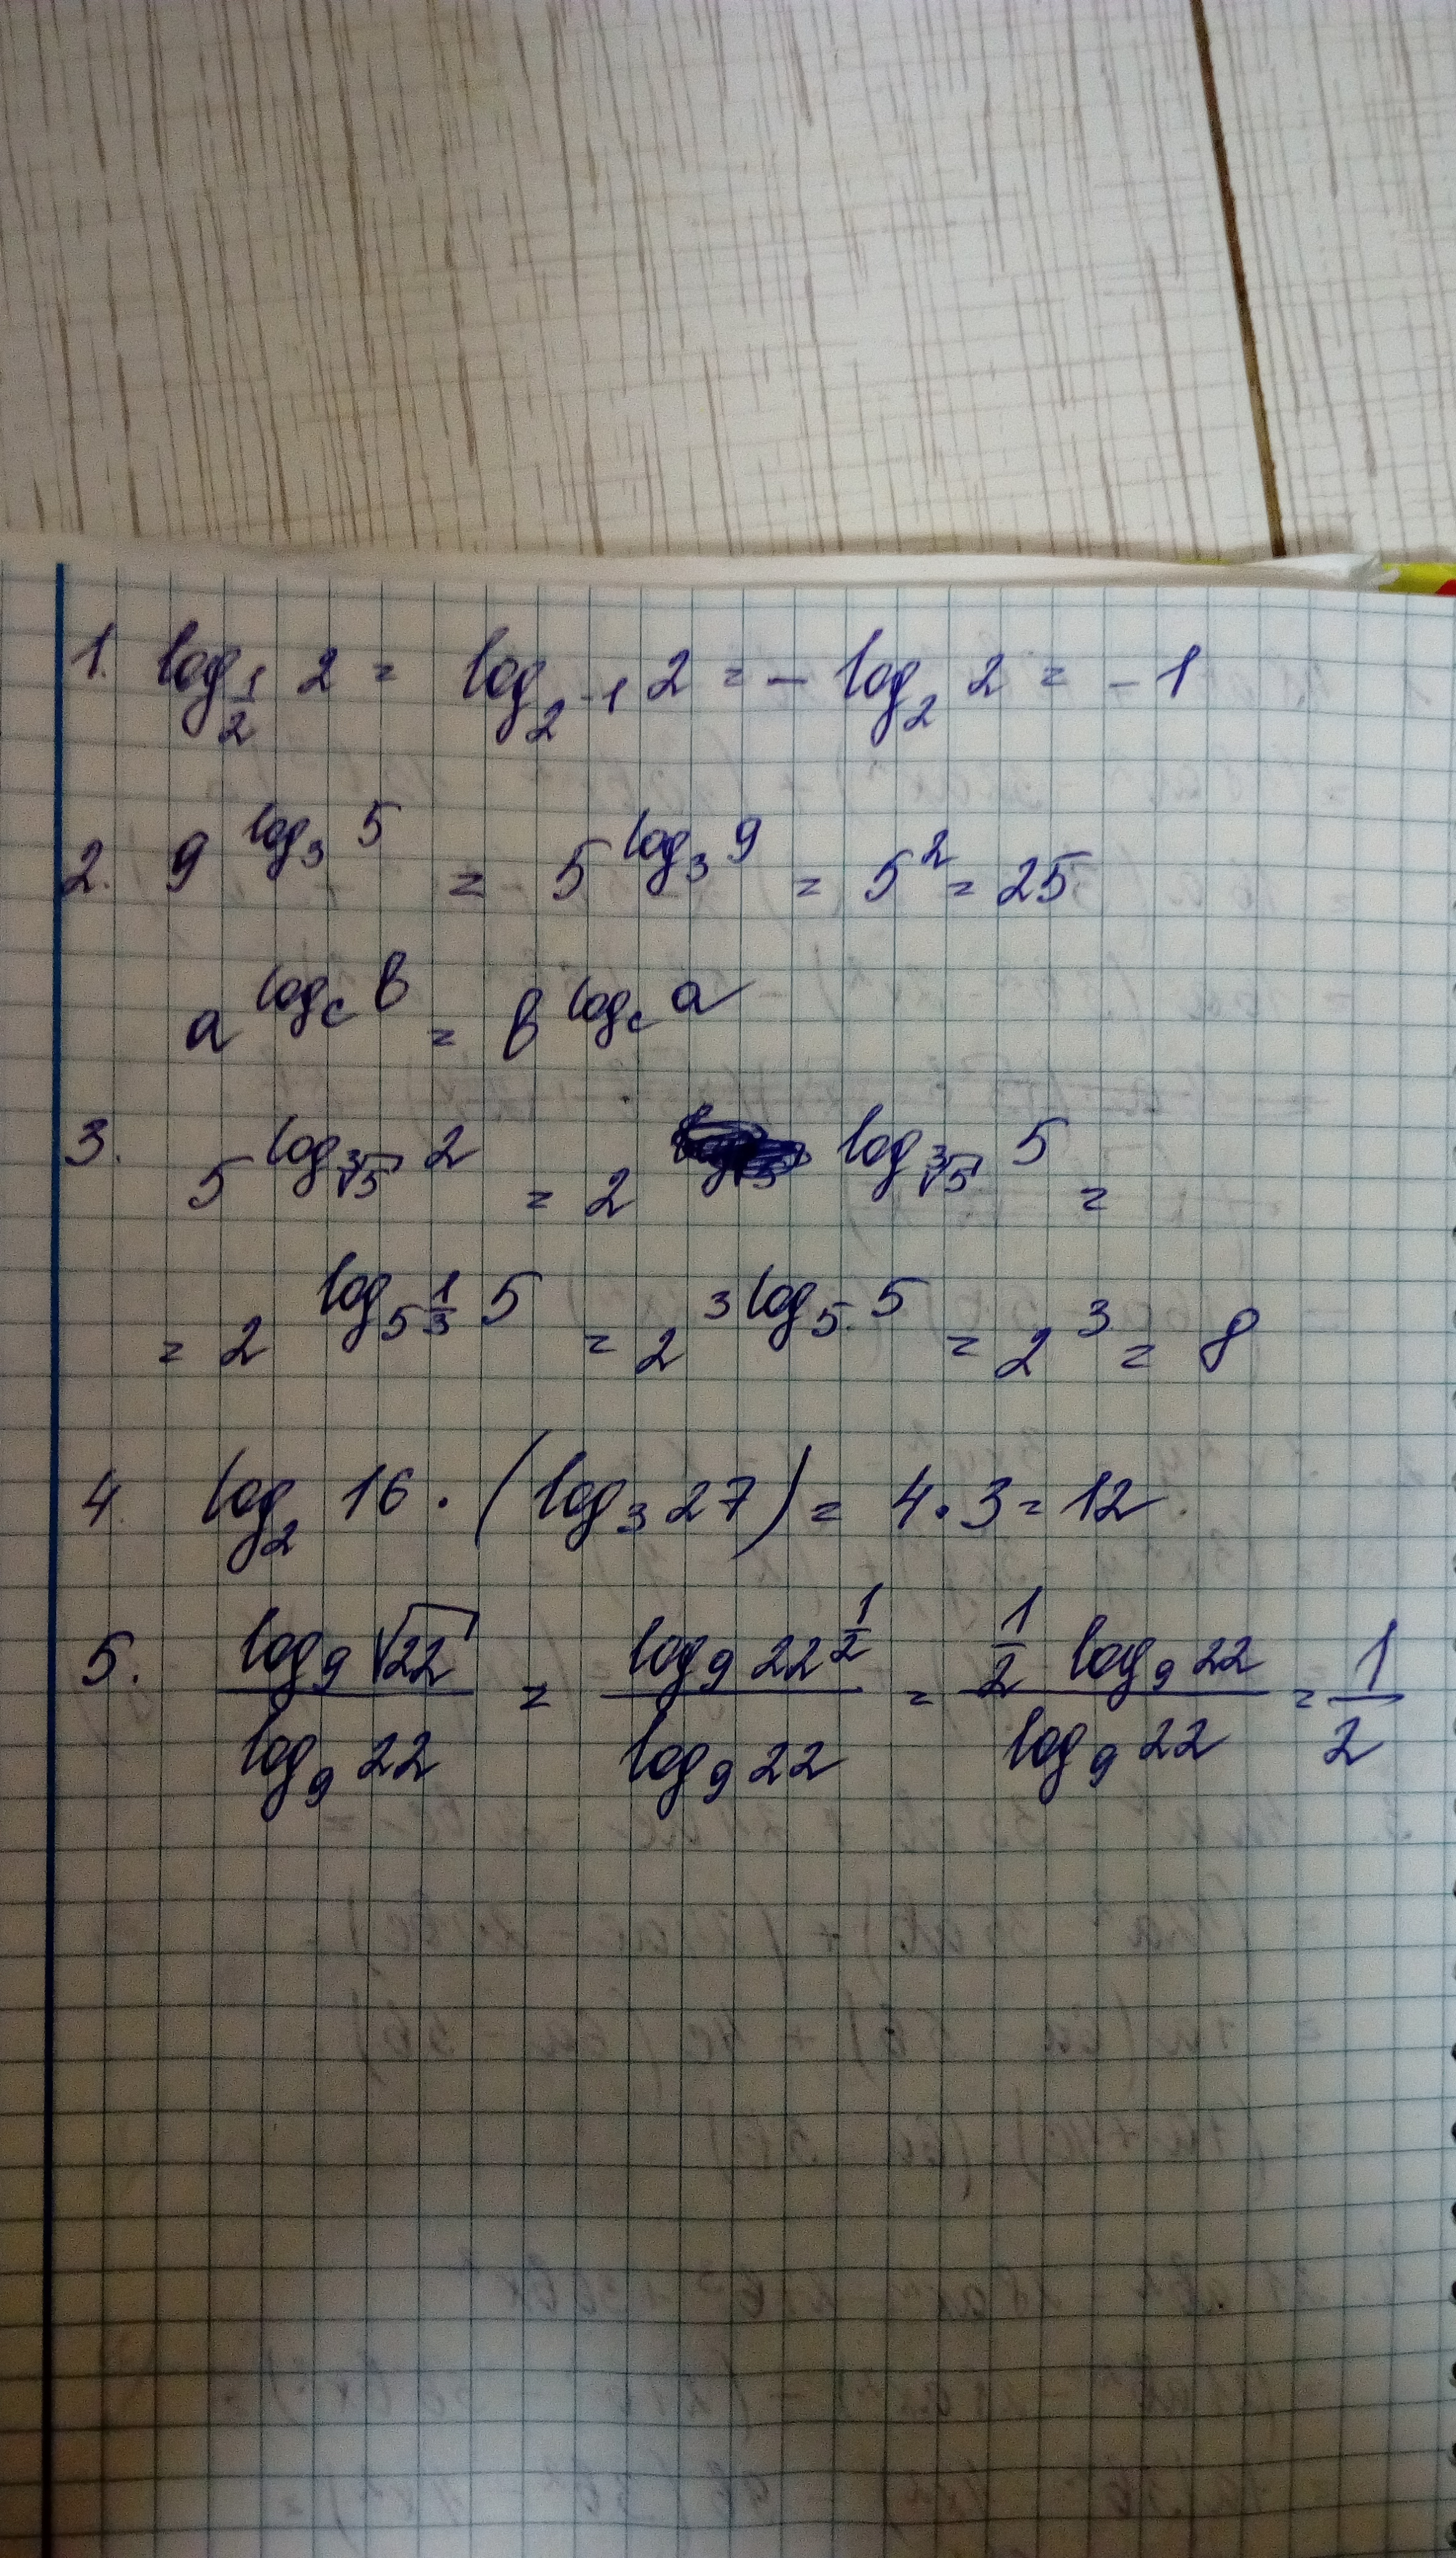 1. log_{1/2} 2 = log_{2^{-1}} 2 = - log_2 2 = -1
2. 9^{log_3 5} = 5^{log_3 9} = 5^2 = 25
a^{log_c b} = b^{log_c a}
3. 5^{log_{∛5} 2} = 2^{log_{∛5} 5} =
= 2^{log_{5^{1/3}} 5} = 2^{3 log_5 5} = 2^3 = 8
4. log_2 16 · (log_3 27) = 4 · 3 = 12
5. \frac{log_9 √22}{log_9 22} = \frac{log_9 22^{1/2}}{log_9 22} = \frac{1/2 log_9 22}{log_9 22} = \frac{1}{2}